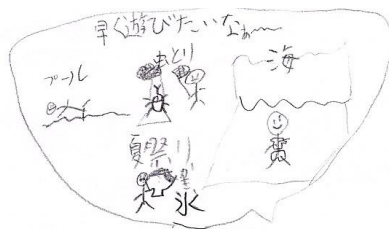 早く遊びたいなぁ〜
プール
虫とり
海
夏祭り
氷